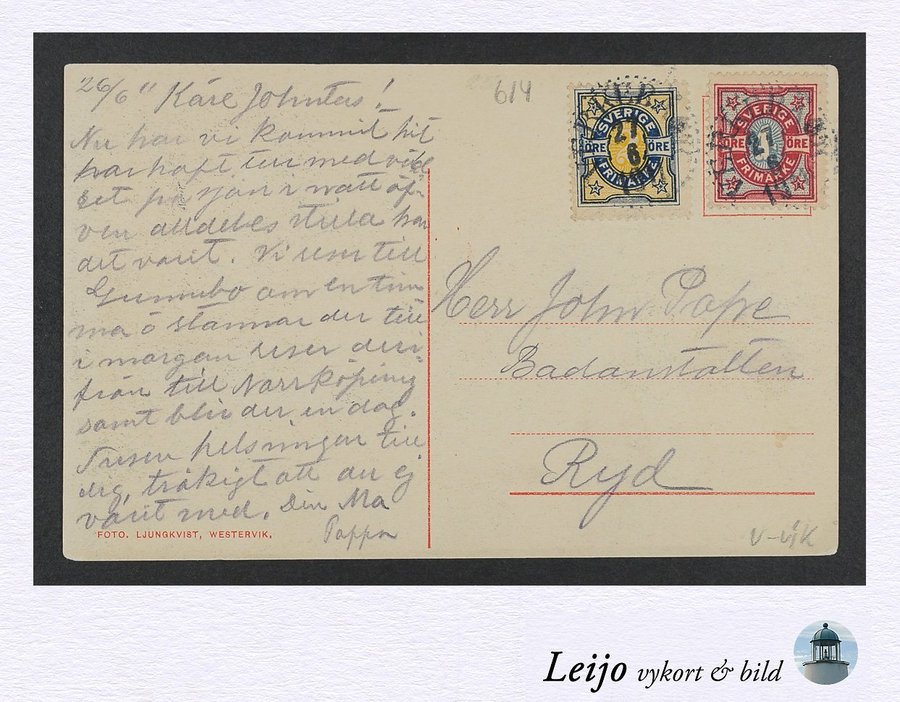 26/6 11 Käre Johntas!
Nu har vi kommit hit
har haft tur med väd
ret för gasar r natt öf-
ven alldeles stilla har
det varit. Vi reser till
Gunnebo om en tim
ma ö stannar der till
i morgon reser deri
från till Norrköping
samt blir der en dag.
Tusen helsningar till
dig, tråkigt att du ej
varit med. Din Ma
Pappa
FOTO. LJUNGKVIST, WESTERVIK,
614
SVERIGE
ÖRE ÖRE
FRIMÄRKE
27
6
SVERIGE
ÖRE ÖRE
FRIMÄRKE
27
6
Herr John Pape
Badanstalten
Ryd
V-VIK
Leijo vykort & bild